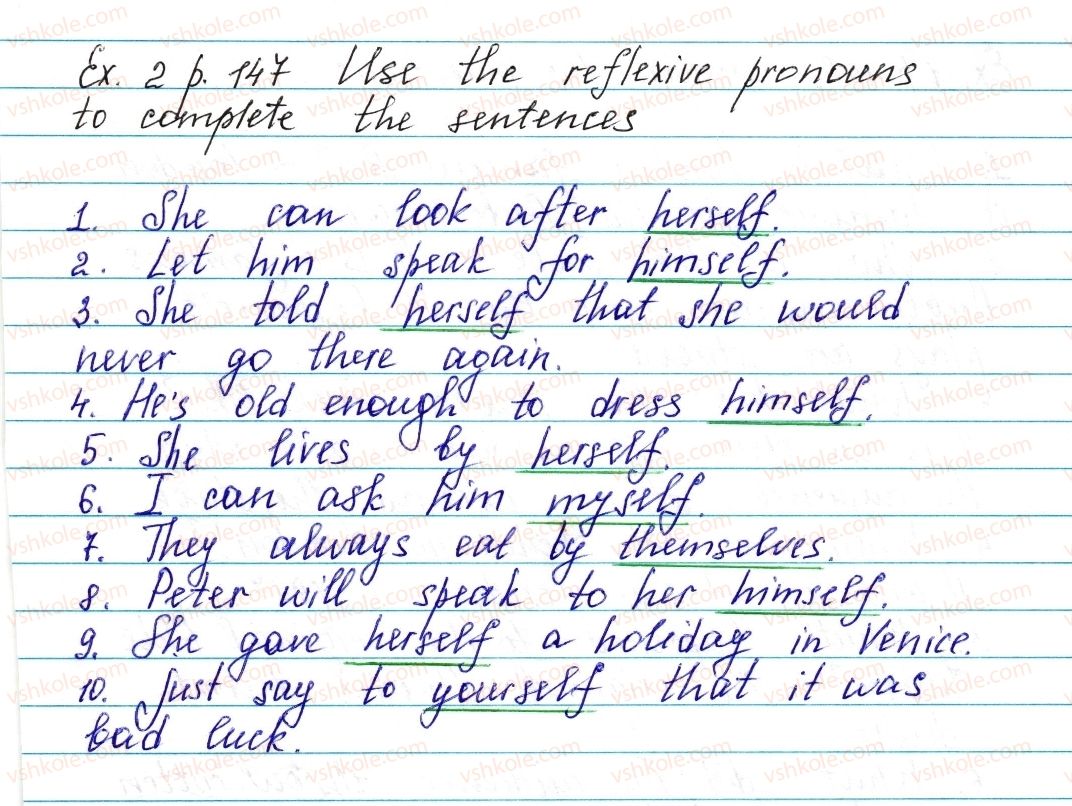 Ex. 2 p. 147 Use the reflexive pronouns
to complete the sentences
1. She can look after herself.
2. Let him speak for himself.
3. She told herself that she would
never go there again.
4. He's old enough to dress himself.
5. She lives by herself.
6. I can ask him myself.
7. They always eat by themselves.
8. Peter will speak to her himself.
9. She gave herself a holiday in Venice.
10. Just say to yourself that it was
bad luck.